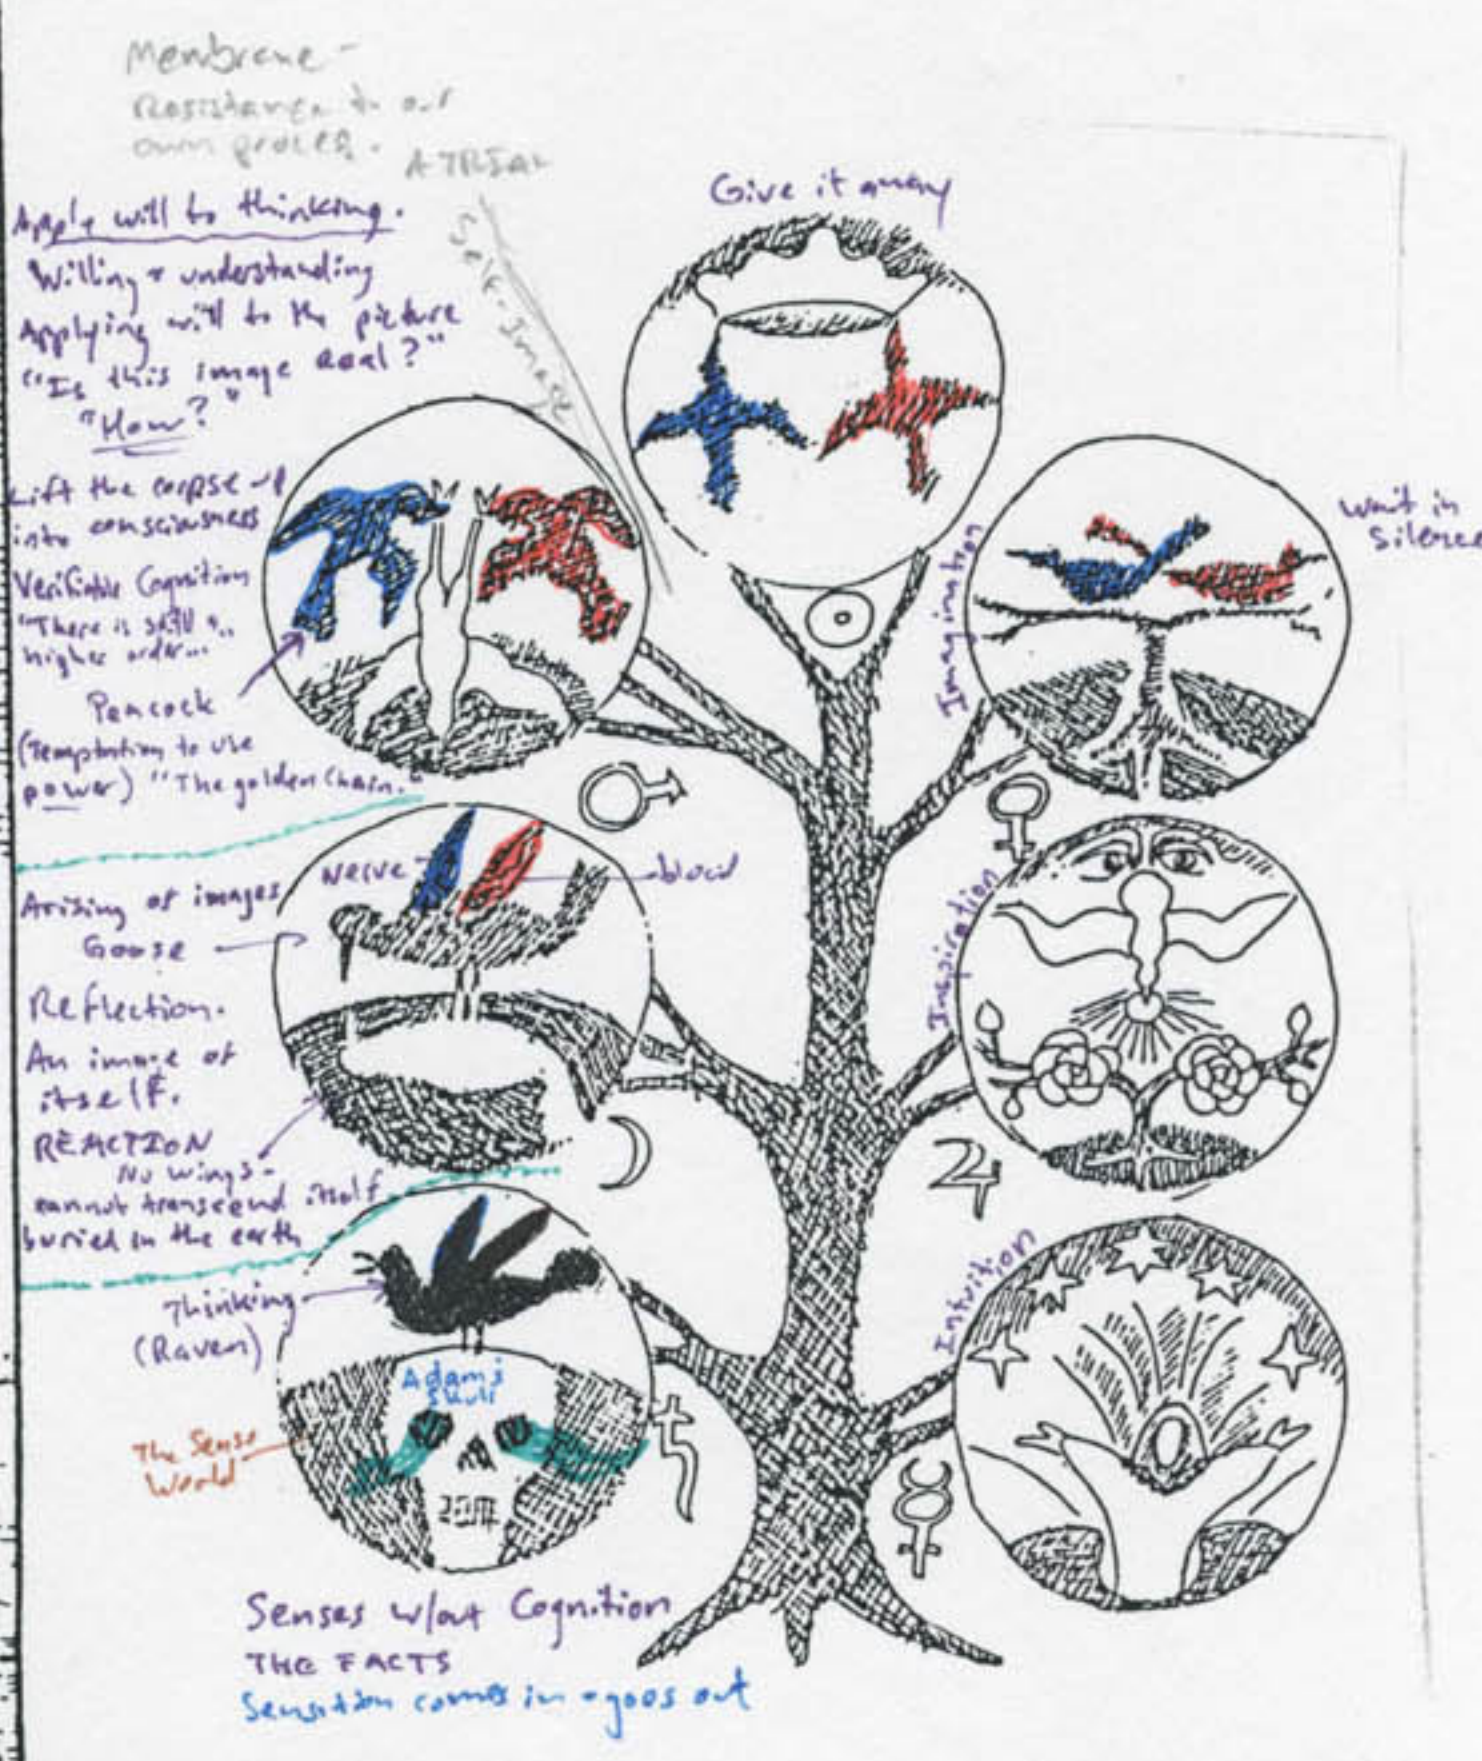 Membrane -
Resistance to our
own process.
A TRIAL
Self-Image
Give it away
Apply will to thinking.
Willing + understanding
Applying will to the picture
"Is this image real?"
"How?"
Lift the corpse up
into consciousness
Verifiable Cognition
"There is still a..
higher order..."
Peacock
(Temptation to use
power) "The golden chain."
Imagination
Wait in
Silence
Nerve
blood
Arising of images
Goose
Reflection.
An image of
itself.
REACTION
No wings -
cannot transcend itself
buried in the earth
Inspiration
Thinking
(Raven)
Adam's
Skull
The Sense
World
Intuition
Senses w/out Cognition
THE FACTS
Sensation comes in - goes out